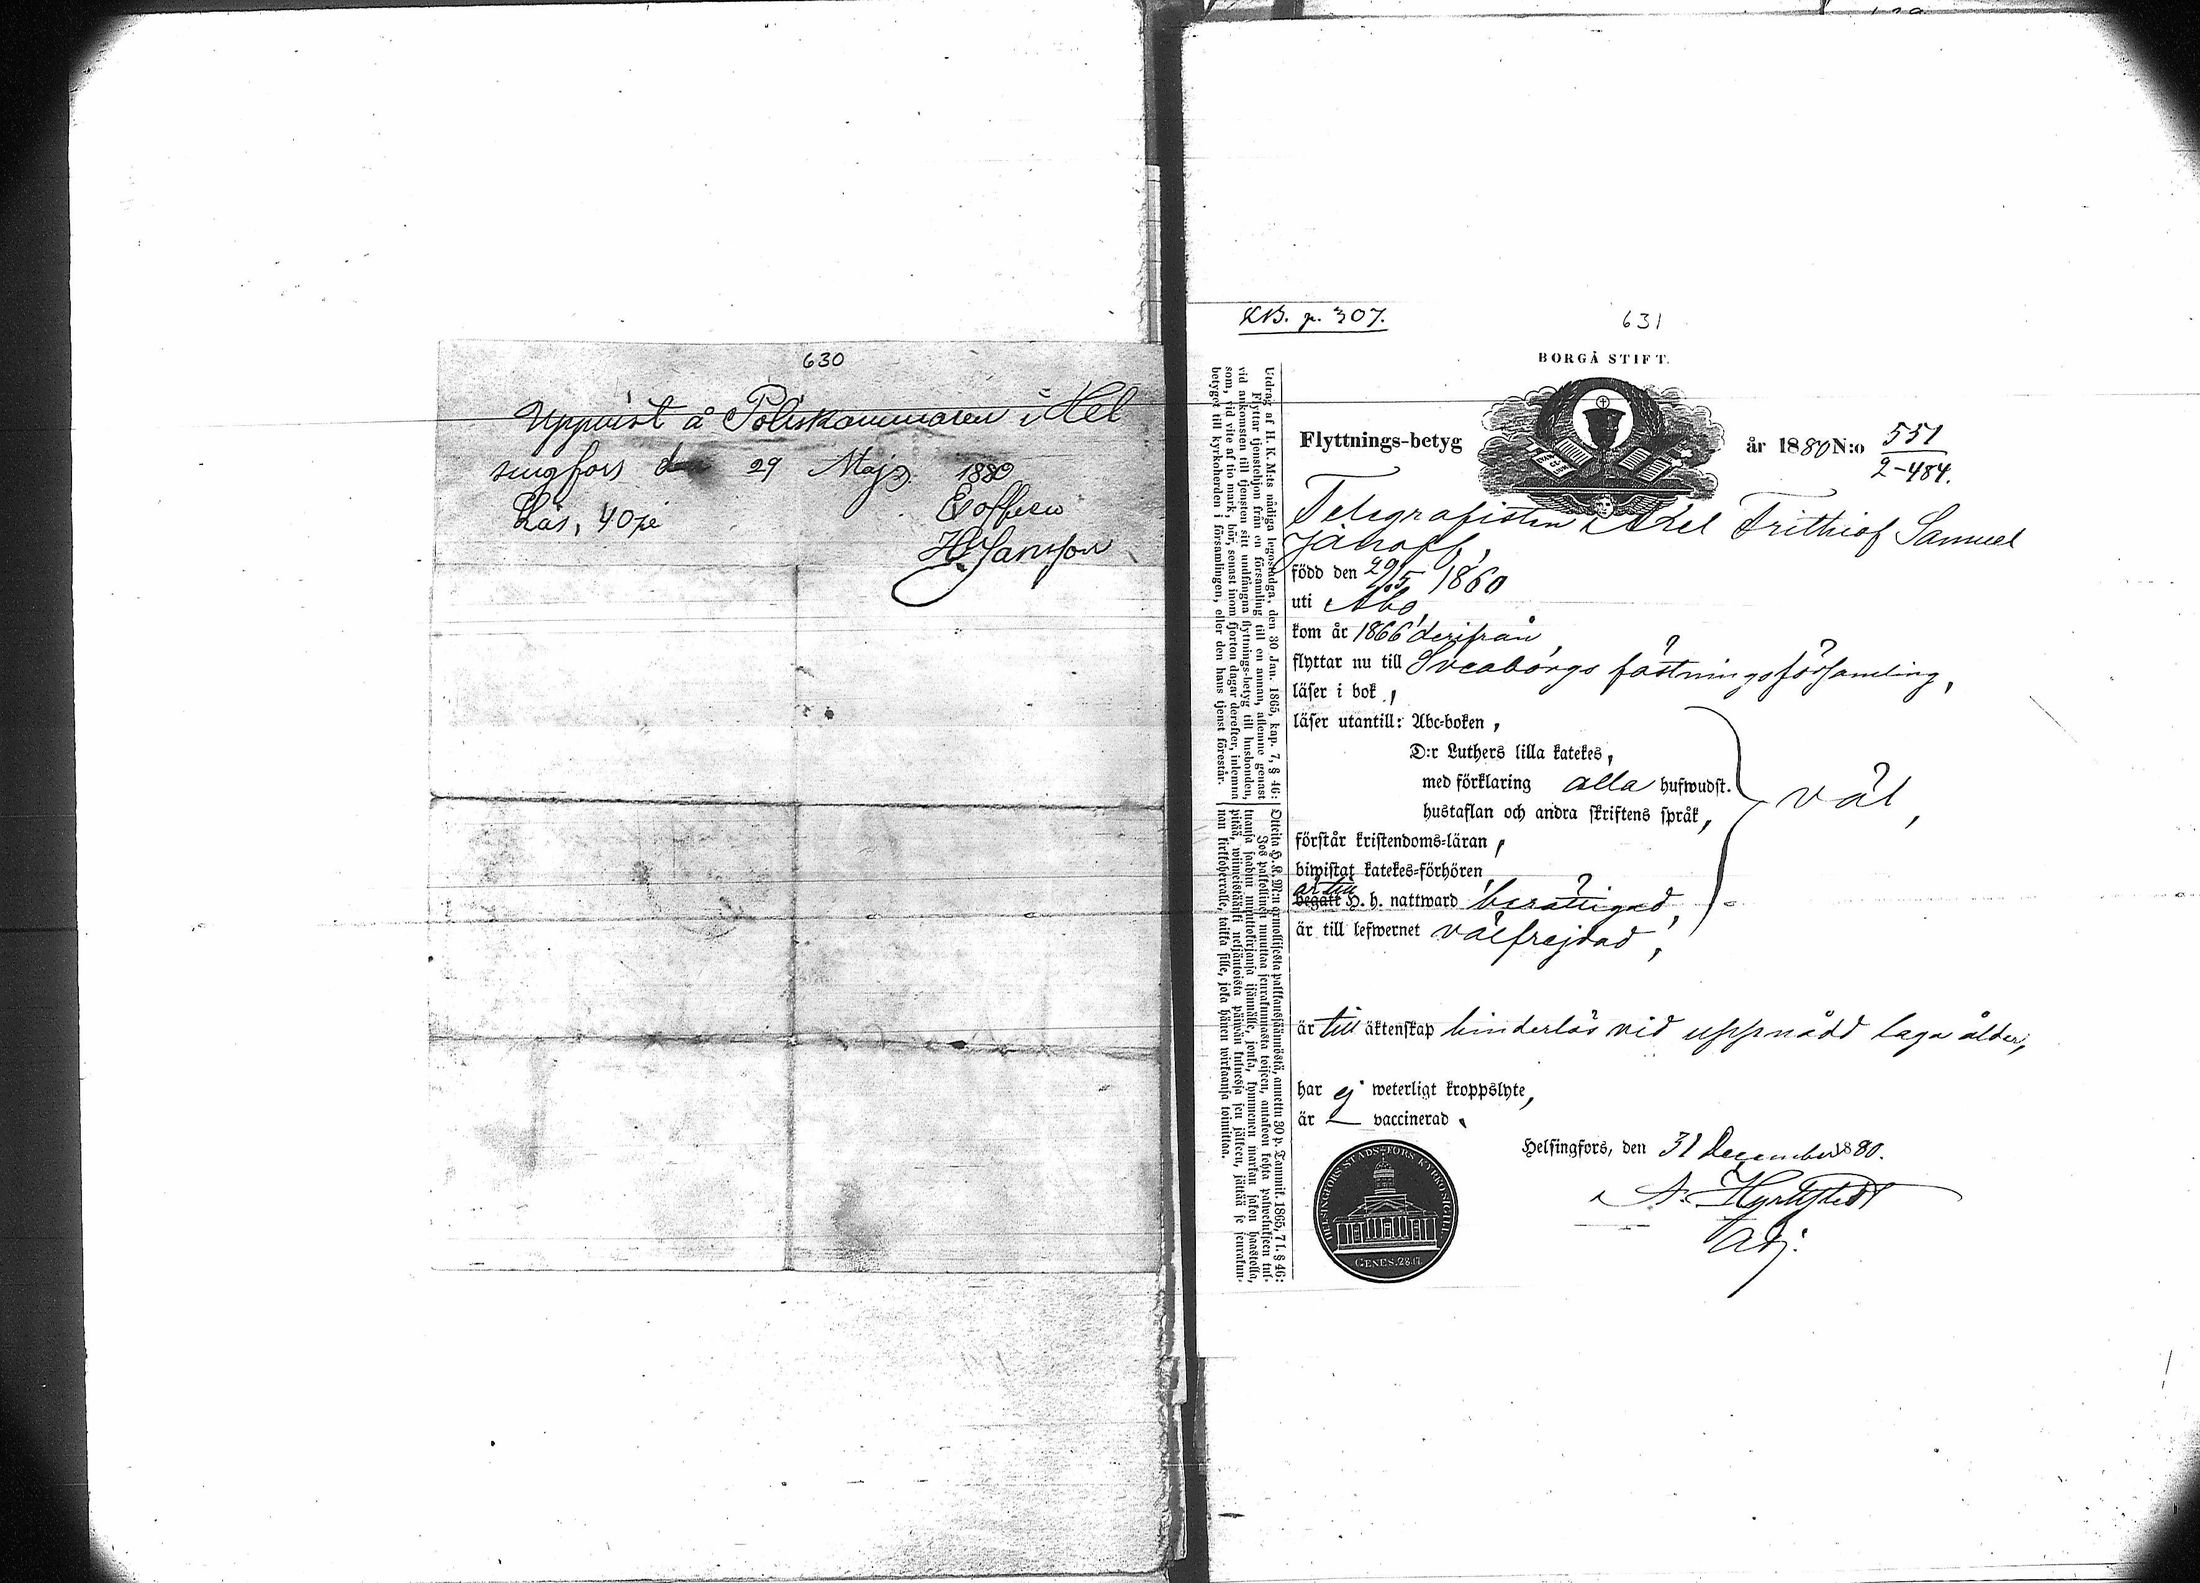 630
Uppvist å Poliskammaren i Hel
singfors den 29 Maj 1880
Lös, 40 pi
Ex officio
H. Jansson
KB. p. 307.
631
BORGÅ STIFT.
Flyttnings-betyg
år 1880 N:o 551
2-484.
Telegrafisten Axel Frithiof Samuel
född den 29/5 1860
uti Åbo,
kom år 1866 derifrån,
flyttar nu till Sveaborgs fästningsförsamling,
läser i bok,
läser utantill: Abc-boken,
D:r Luthers lilla katekes,
med förklaring alla hufwudst.
hustaflan och andra skriftens språk,
väl,
förstår kristendoms-läran,
biwistat katekes-förhören,
är till
begått H. h. nattward berättigad,
är till lefwernet välfrejdad,
är till äktenskap hinderlös vid uppnådd laga ålder,
har ej weterligt kroppslyte,
är vaccinerad.
Helsingfors, den 31 December 1880.
Adj.
HELSINGFORS STADS KYRKOSIGILL
GENES. 28.17.
Utdrag af H. K. M:ts nådiga legostadga, den 30 Jan. 1865, kap. 7, § 46:
Flyttar tjenstehjon från en församling till en annan, aflemne genast
vid ankomsten till tjensten sitt undfångna flyttnings-betyg till husbonden,
som, vid vite af tio mark, bör, senast inom fjorton dagar derefter, inlemna
betyget till kyrkoherden i församlingen, eller den hans tjenst förestår.